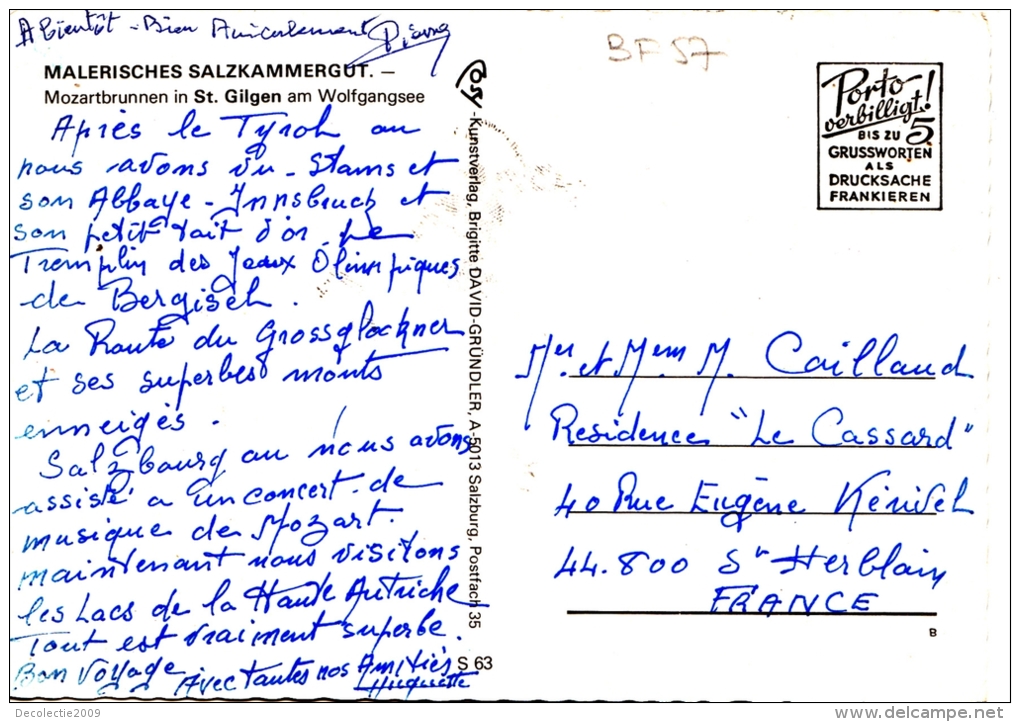 A bientôt - Bien Amicalement
MALERISCHES SALZKAMMERGUT. —
Mozartbrunnen in St. Gilgen am Wolfgangsee
Après le Tyrol ou
nous avons vu - Stams et
son Abbaye - Innsbruck et
son petit toit d'or - Le
Tremplin des Jeaux Olimpiques
de Bergisel.
La Route du Grossglockner
et ses superbes monts
enneigés.
Salzbourg ou nous avons
assisté a un concert de
musique de Mozart.
maintenant nous visitons
les Lacs de la Haute Autriche
Tout est vraiment superbe.
Bon Voyage Avec toutes nos Amitiés
Huguette
S 63
Cosy-Kunstverlag, Brigitte DAVID-GRÜNDLER, A-5013 Salzburg, Postfach 35
BF 57
Porto
verbilligt!
BIS ZU 5
GRUSSWORTEN
ALS
DRUCKSACHE
FRANKIEREN
Mer et Mem M. Caillaud
Residence "Le Cassard"
40 Rue Eugène
44.800 St Herblain
FRANCE
B
Decolectie2009
delcampe.net